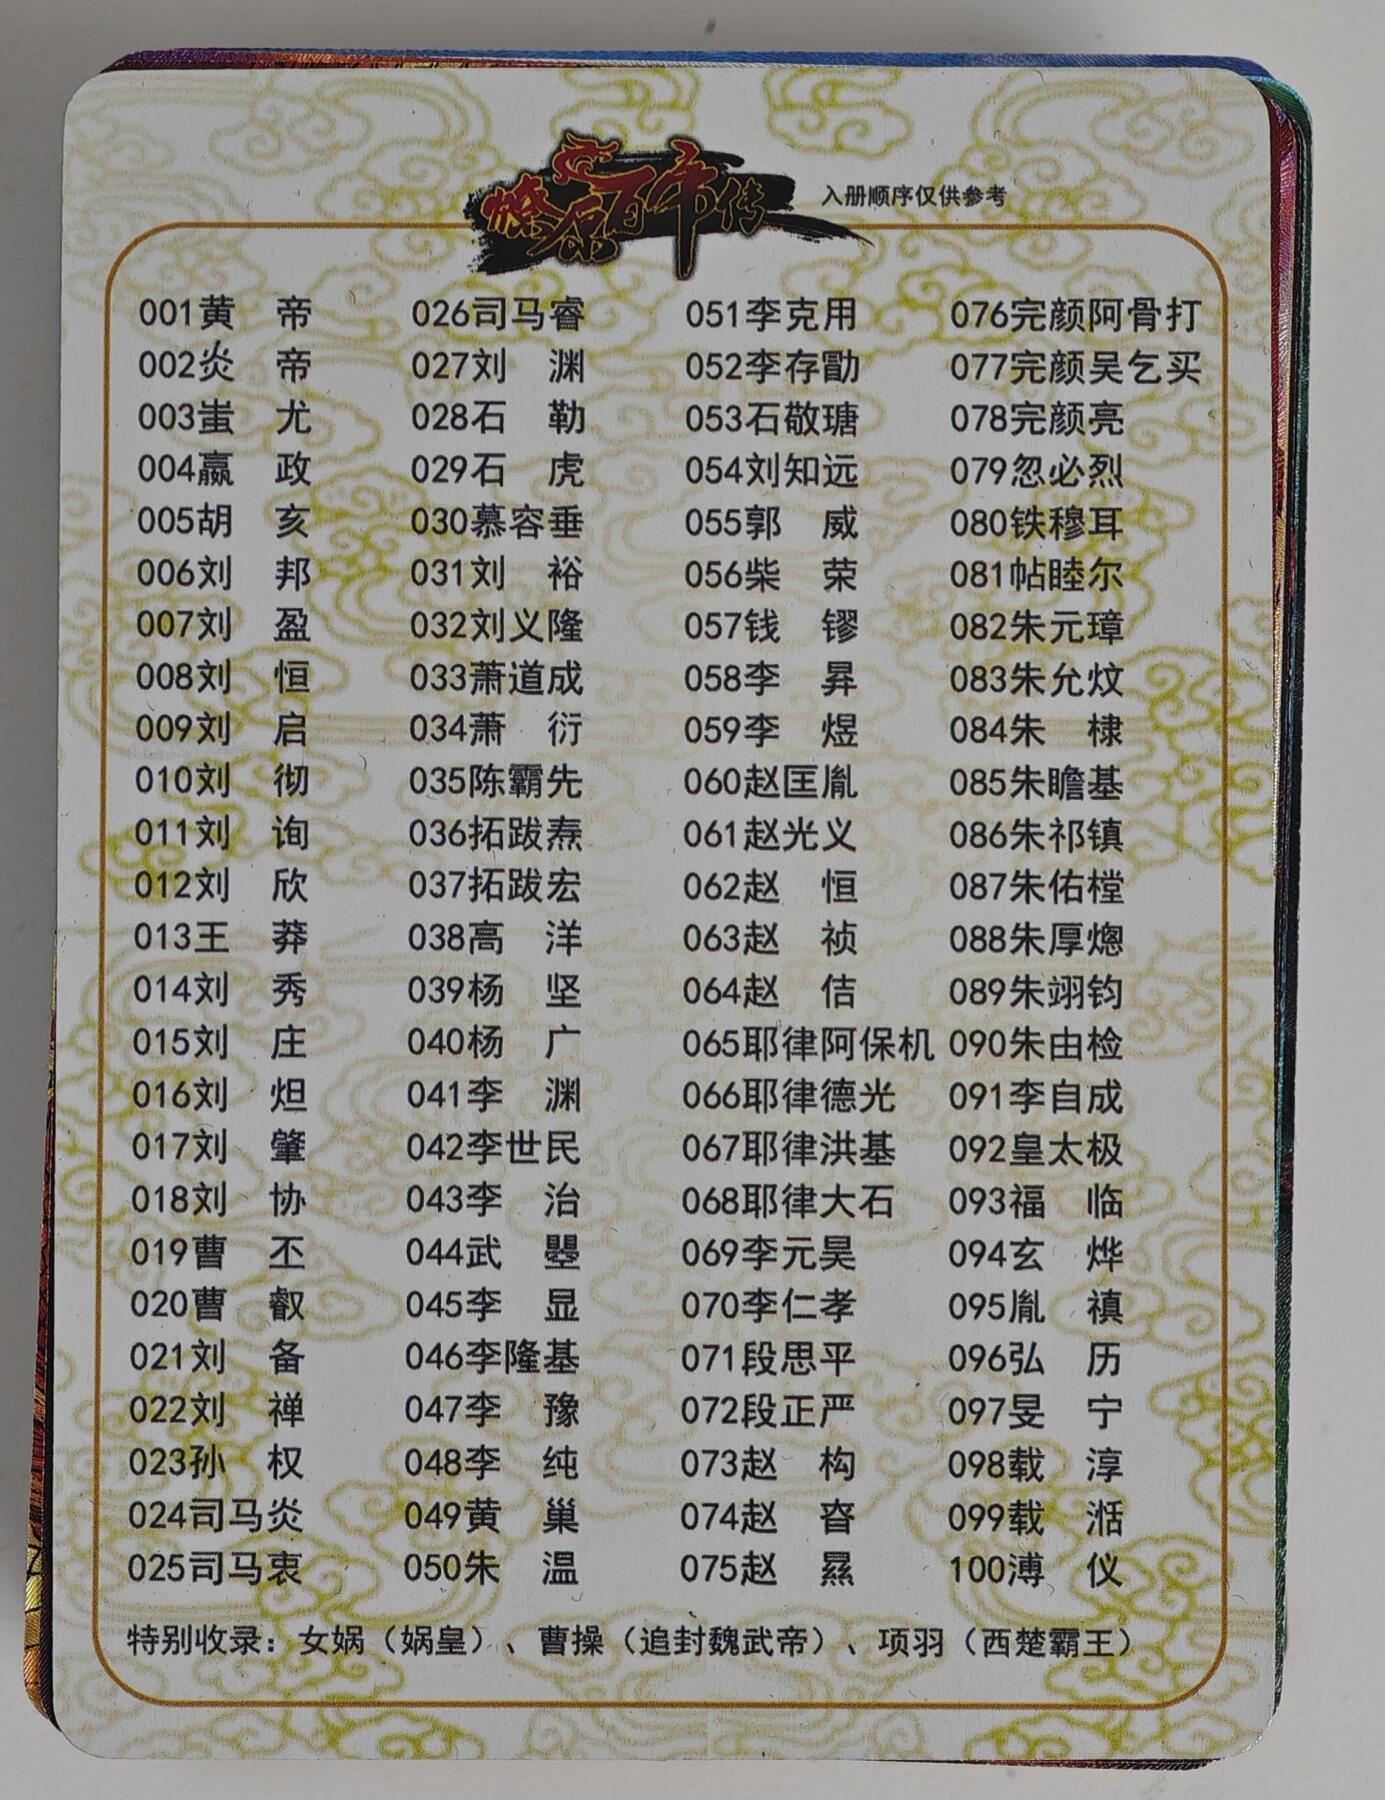 燎原百帝传
入册顺序仅供参考
001黄 帝 026司马睿 051李克用 076完颜阿骨打
002炎 帝 027刘 渊 052李存勖 077完颜吴乞买
003蚩 尤 028石 勒 053石敬瑭 078完颜亮
004嬴 政 029石 虎 054刘知远 079忽必烈
005胡 亥 030慕容垂 055郭 威 080铁穆耳
006刘 邦 031刘 裕 056柴 荣 081帖睦尔
007刘 盈 032刘义隆 057钱 镠 082朱元璋
008刘 恒 033萧道成 058李 昪 083朱允炆
009刘 启 034萧 衍 059李 煜 084朱 棣
010刘 彻 035陈霸先 060赵匡胤 085朱瞻基
011刘 询 036拓跋焘 061赵光义 086朱祁镇
012刘 欣 037拓跋宏 062赵 恒 087朱佑樘
013王 莽 038高 洋 063赵 祯 088朱厚熜
014刘 秀 039杨 坚 064赵 佶 089朱翊钧
015刘 庄 040杨 广 065耶律阿保机 090朱由检
016刘 炟 041李 渊 066耶律德光 091李自成
017刘 肇 042李世民 067耶律洪基 092皇太极
018刘 协 043李 治 068耶律大石 093福 临
019曹 丕 044武 曌 069李元昊 094玄 烨
020曹 叡 045李 显 070李仁孝 095胤 禛
021刘 备 046李隆基 071段思平 096弘 历
022刘 禅 047李 豫 072段正严 097旻 宁
023孙 权 048李 纯 073赵 构 098载 淳
024司马炎 049黄 巢 074赵 昚 099载 湉
025司马衷 050朱 温 075赵 㬎 100溥 仪
特别收录：女娲（娲皇）、曹操（追封魏武帝）、项羽（西楚霸王）